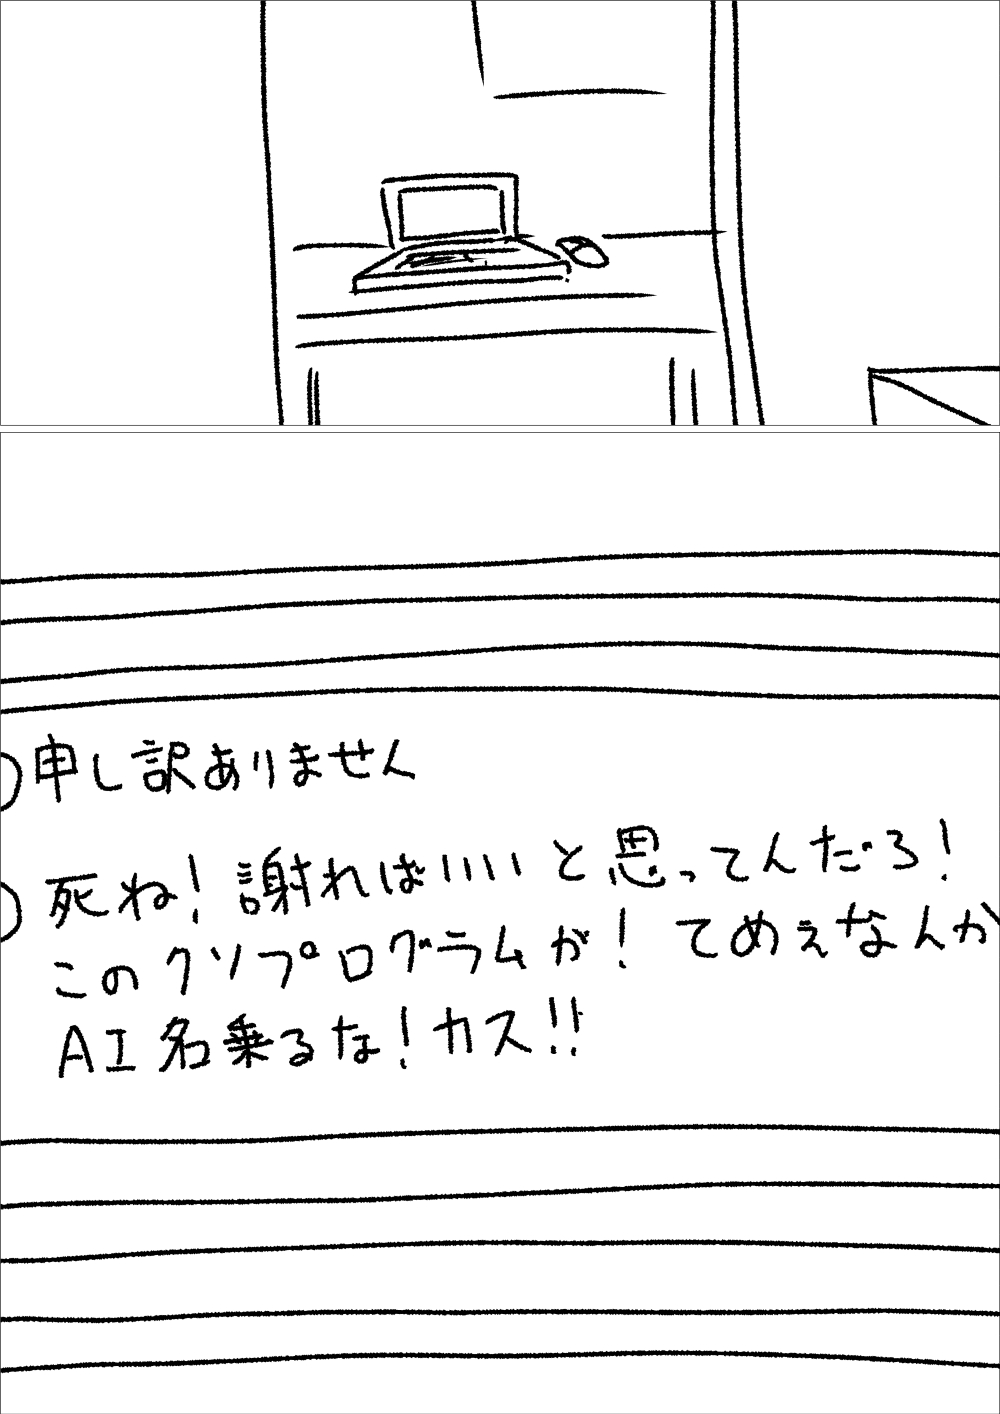 申し訳ありません
死ね！謝ればいいと思ってんだろ！
このクソプログラムが！てめぇなんか
AI名乗るな！カス！！